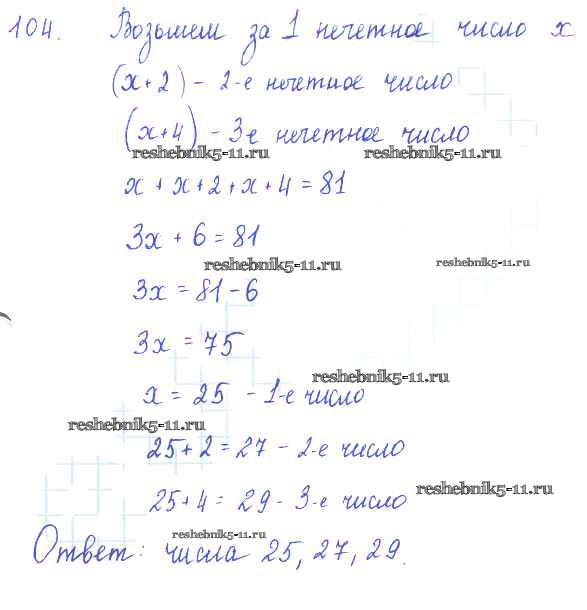 104. Возьмем за 1 нечетное число x
(x+2) - 2-е нечетное число
(x+4) - 3-е нечетное число
reshebnik5-11.ru reshebnik5-11.ru
x + x + 2 + x + 4 = 81
3x + 6 = 81
reshebnik5-11.ru reshebnik5-11.ru
3x = 81 - 6
3x = 75
reshebnik5-11.ru
x = 25 - 1-е число
reshebnik5-11.ru
25 + 2 = 27 - 2-е число
25 + 4 = 29 - 3-е число
reshebnik5-11.ru
reshebnik5-11.ru
Ответ: числа 25, 27, 29.